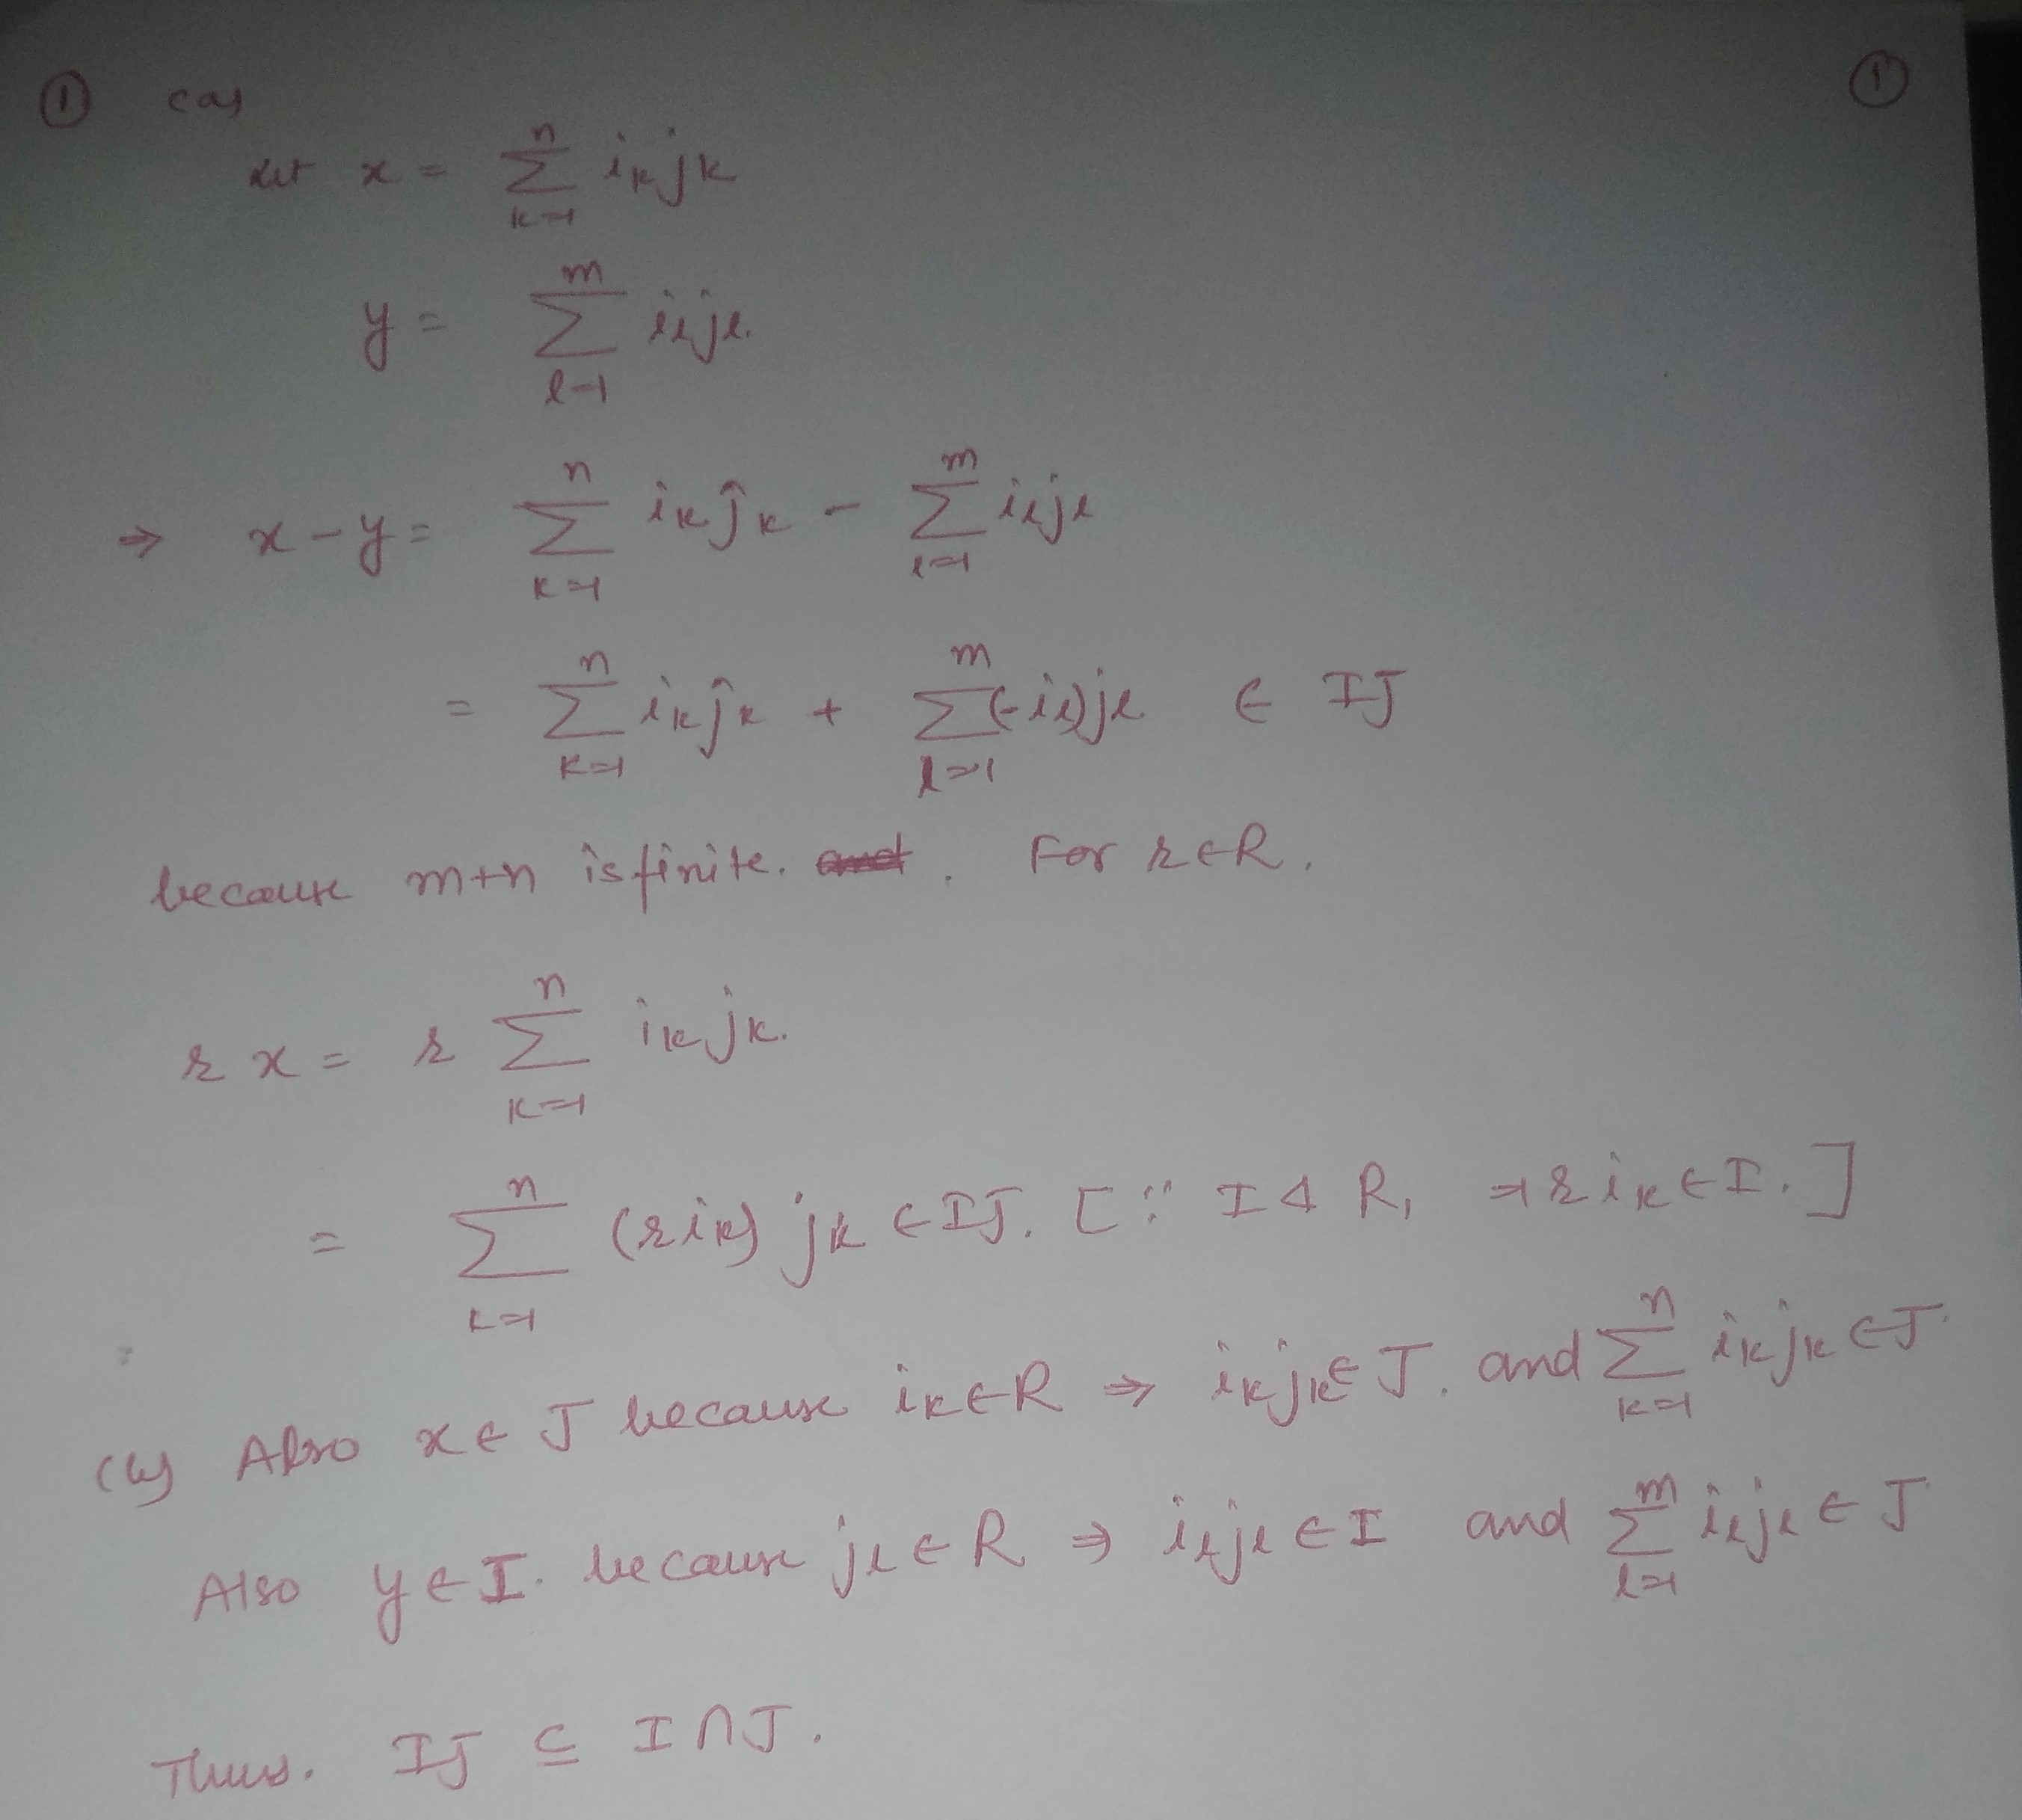 ① (a) ①
Let x = \sum_{k=1}^{n} i_k j_k
y = \sum_{l=1}^{m} i_l j_l.
⇒ x - y = \sum_{k=1}^{n} i_k j_k - \sum_{l=1}^{m} i_l j_l
= \sum_{k=1}^{n} i_k j_k + \sum_{l=1}^{m} (-i_l) j_l ∈ IJ
because m+n is finite. . For r∈R.
r x = r \sum_{k=1}^{n} i_k j_k.
= \sum_{k=1}^{n} (r i_k) j_k ∈ IJ. [∵ I ⊲ R, ⇒ r i_k ∈ I.]
(b) Also x ∈ J because i_k ∈ R ⇒ i_k j_k ∈ J. and \sum_{k=1}^{n} i_k j_k ∈ J.
Also y ∈ I. because j_l ∈ R ⇒ i_l j_l ∈ I and \sum_{l=1}^{m} i_l j_l ∈ J
Thus. IJ ⊆ I ∩ J.